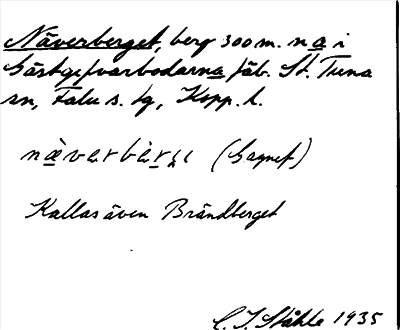 Näverberget, berg 300 m. n a i
Gästgifvarbodarna fäb. St. Tuna
sn, Falu s. tg, Kopp. l.
(Gagnef)
Kallas även Brändberget
C. I. Ståhle 1935